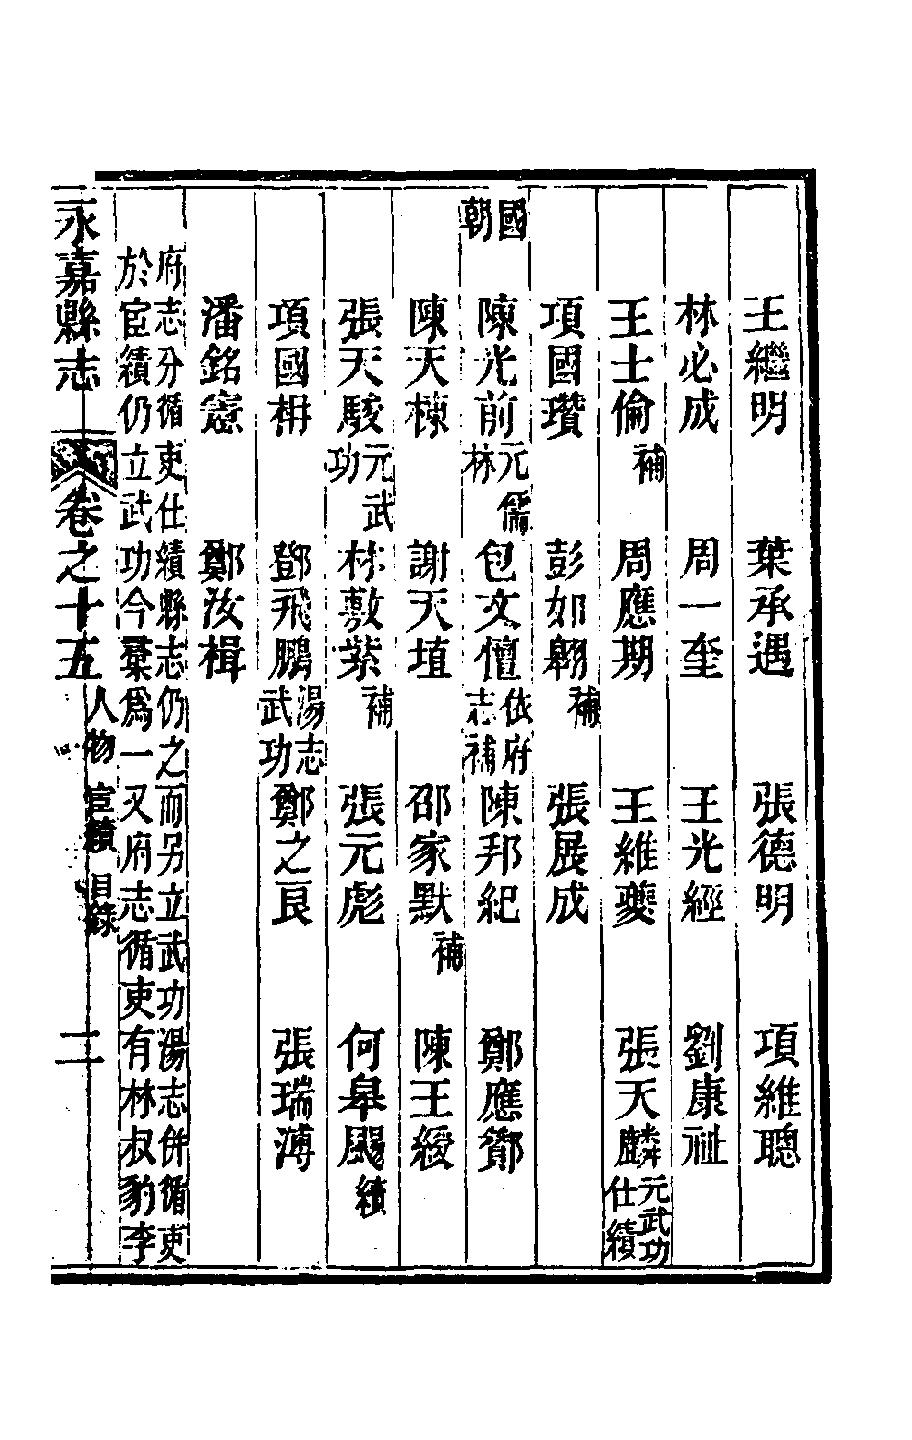 王繼明 葉承遇 張德明 項維聰
林必成 周一奎 王光經 劉康祉
王士倫補 周應期 王維夔 張天麟元武功仕績
項國瓚 彭如翱補 張展成
國朝
陳光前元儒林 包文儃依府志補 陳邦紀 鄭應鄧
陳天棟 謝天埴 邵家默補 陳王綬
張天駿元武功 林敷紫補 張元彪 何皋颺績
項國柟 鄧飛鵬湯志武功 鄭之艮 張瑞溥
潘銘憲 鄭汝楫
府志分循吏仕績縣志仍之而另立武功湯志併循吏
於宦績仍立武功今彙爲一又府志循吏有林叔豹李
永嘉縣志 卷之十五 人物 宦績 目錄 二